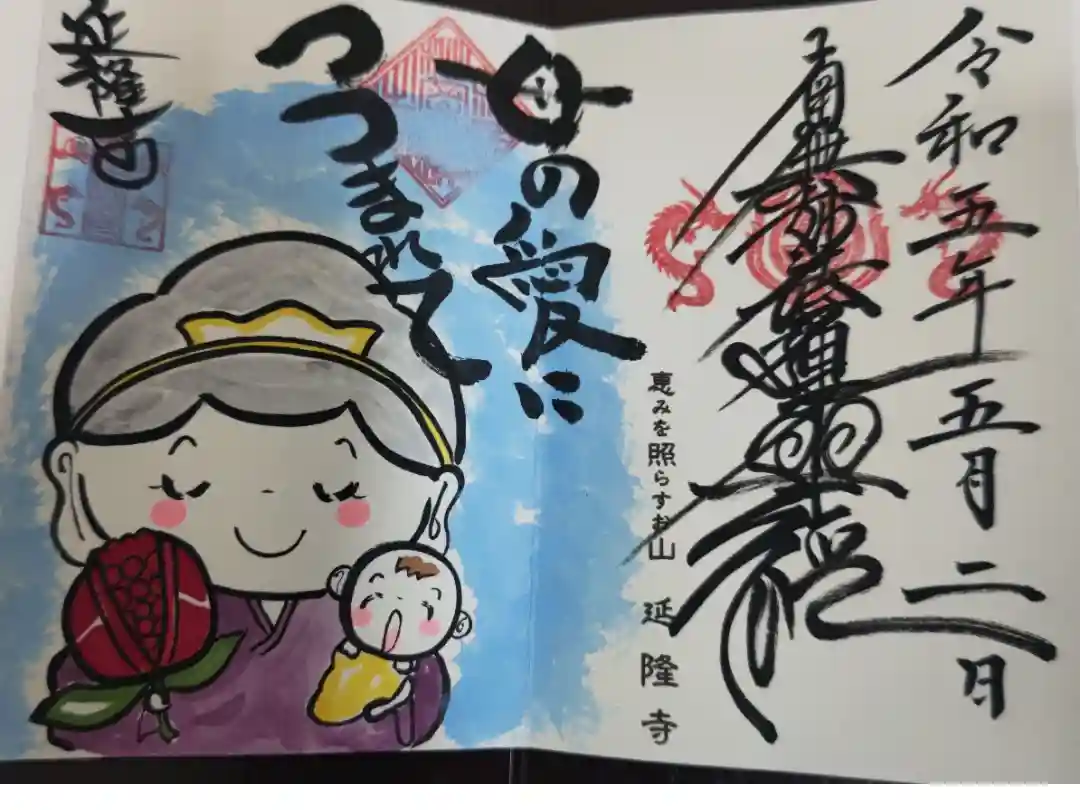 令和五年五月二日
南無妙法蓮華経
恵みを照らすお山 延隆寺
母の愛に
つつまれて
延隆寺